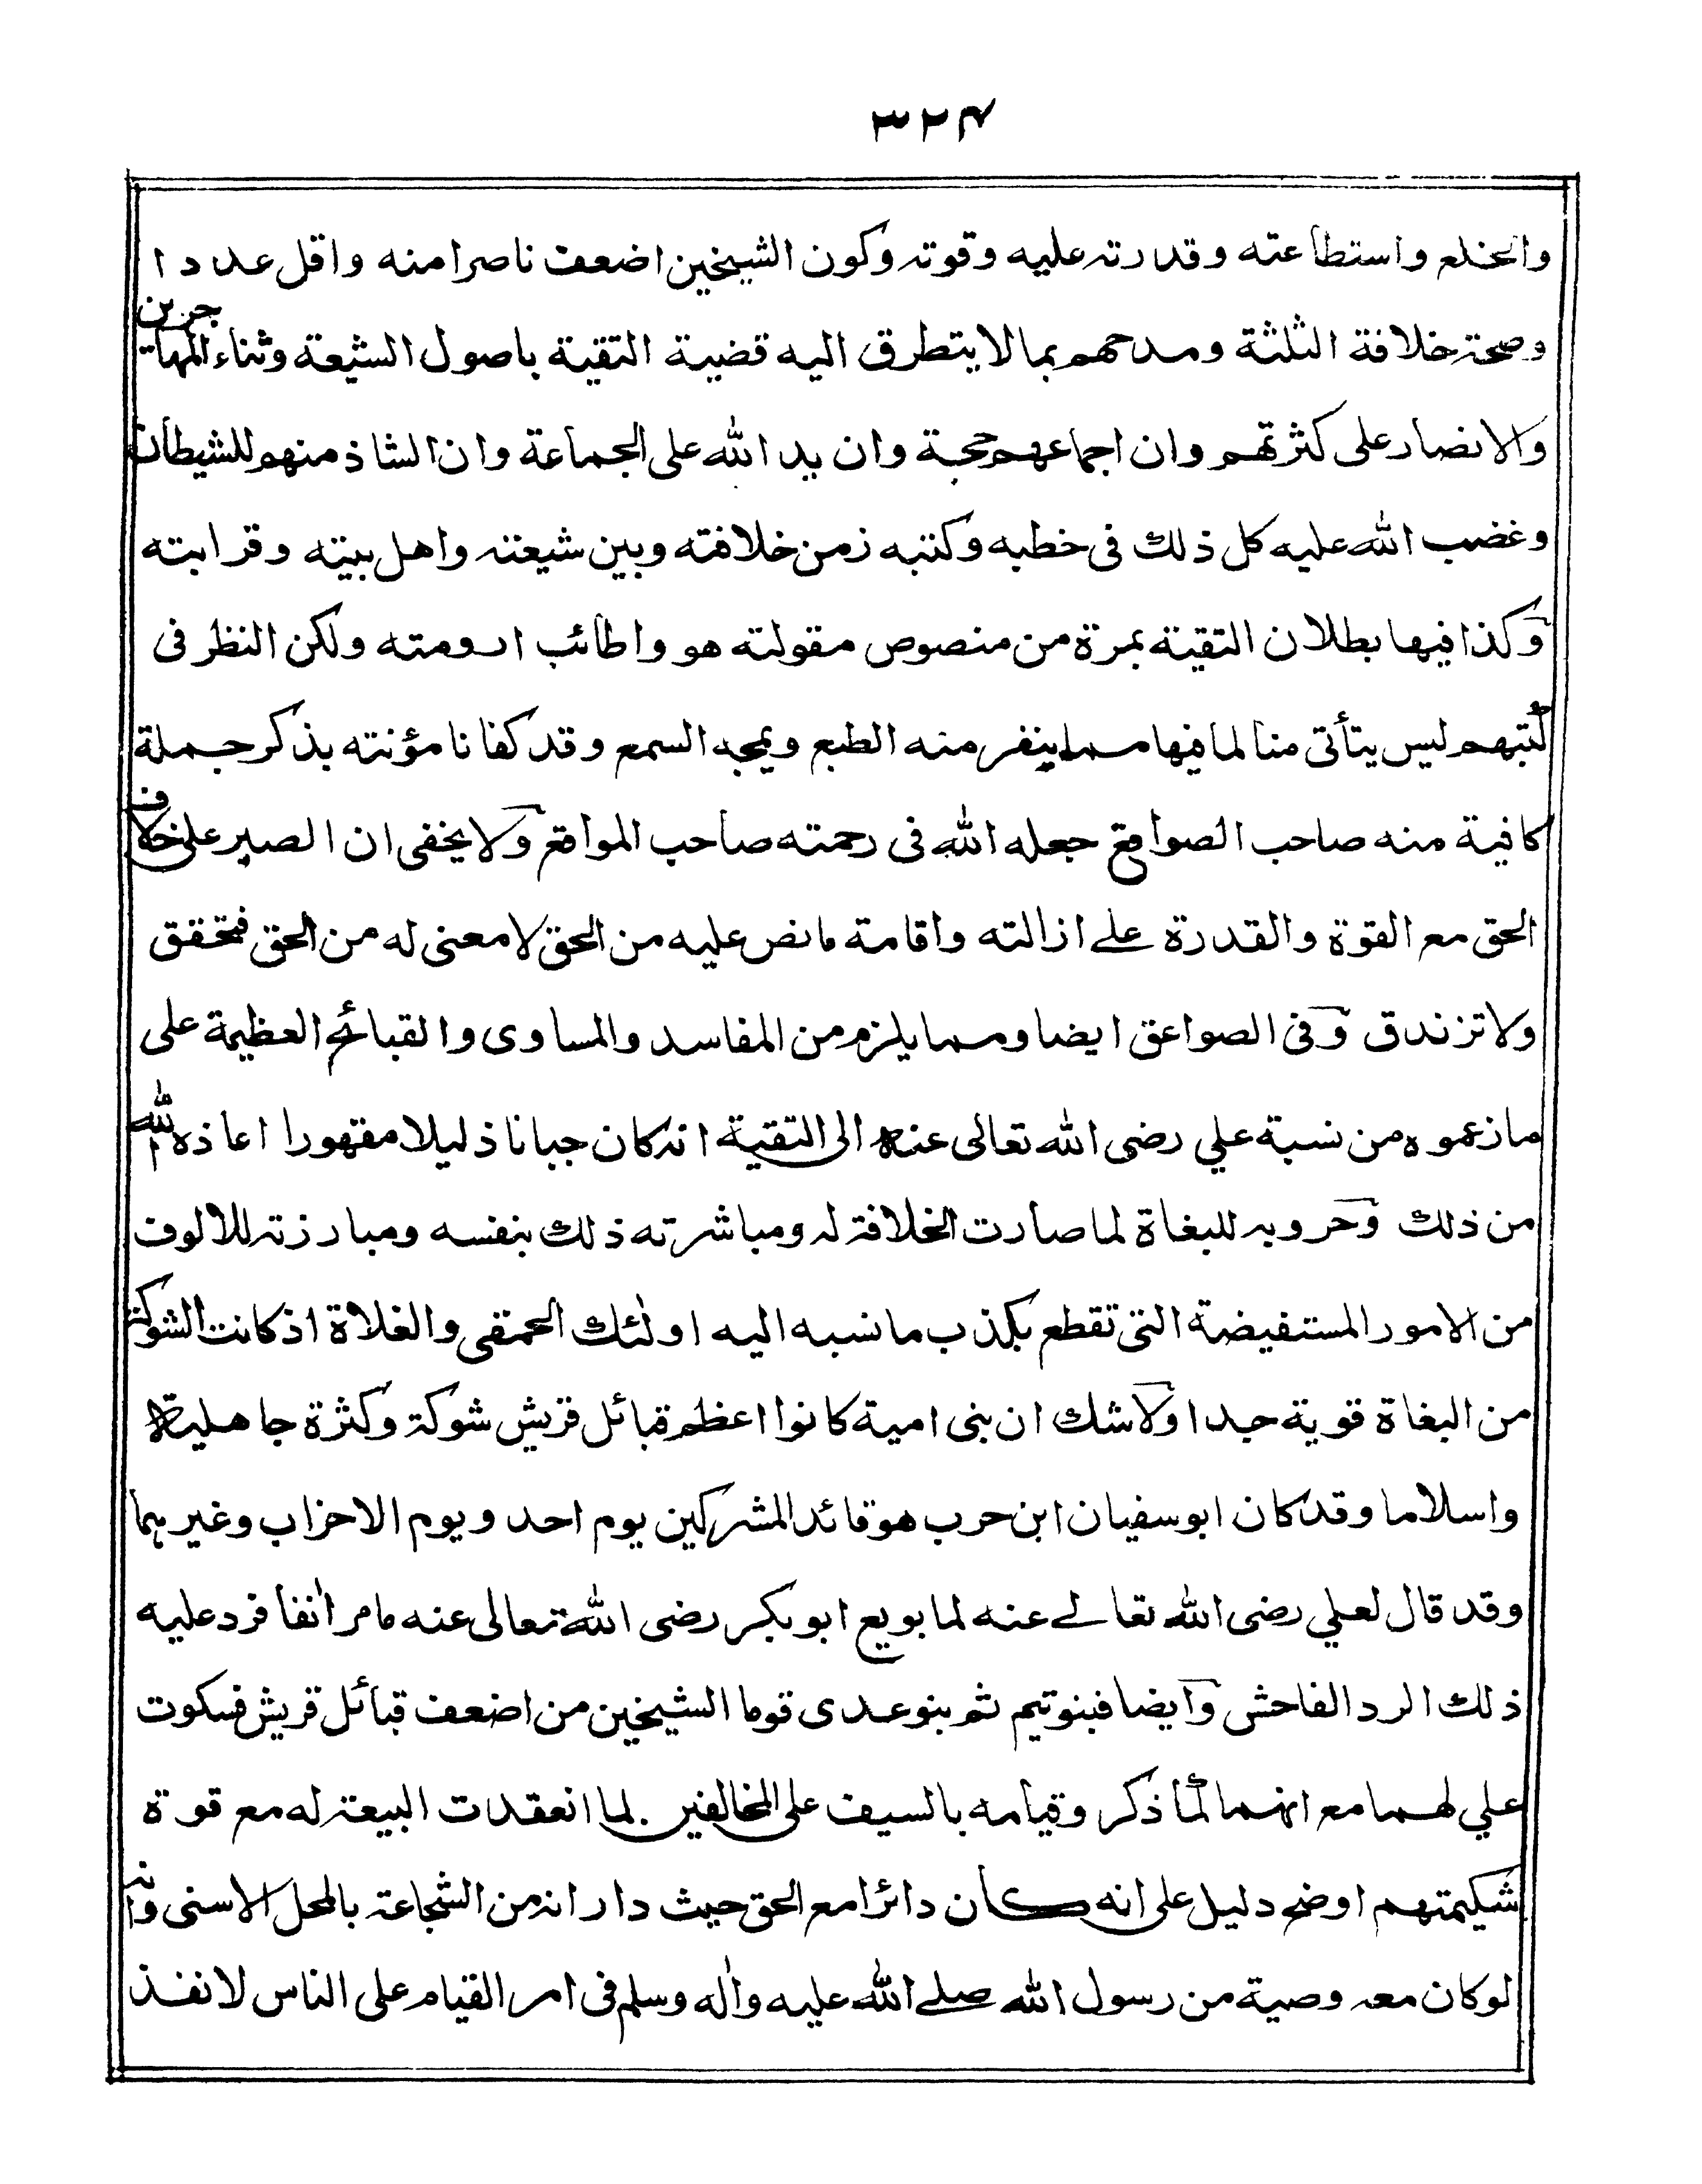 ٣٢٤
والخلع واستطاعته وقدرته عليه وقوته وكون الشيخين اضعف ناصرا منه واقل عددا
وصحة خلافة الثلثة ومدحهم بما لا يتطرق اليه قضية التقية باصول الشيعة وثناء المهاجرين
والانصار على كثرتهم وان اجماعهم حجة وان يد الله على الجماعة وان الشاذ منهم للشيطان
وغضب الله عليه كل ذلك فى خطبه وكتبه زمن خلافته وبين شيعته واهل بيته وقرابته
وكذا فيها بطلان التقية بمرة من منصوص مقولته هو واطائب ارومته ولكن النظر فى
كتبهم ليس يتأتى منا لما فيها مما ينفر منه الطبع ويمجه السمع وقد كفانا مؤنته بذكر جملة
كافية منه صاحب الصواقع جعله الله فى رحمته صاحب المواقع ولا يخفى ان الصبر على خلاف
الحق مع القوة والقدرة على ازالته واقامة ما نص عليه من الحق لا معنى له من الحق فتحقق
ولا تزندق وفى الصواعق ايضا ومما يلزم من المفاسد والمساوى والقبائح العظيمة على
ما زعموه من نسبة علي رضى الله تعالى عنه الى التقية انه كان جبانا ذليلا مقهورا اعاذه الله
من ذلك وحروبه للبغاة لما صارت الخلافة له ومباشرته ذلك بنفسه ومبارزته للالوف
من الامور المستفيضة التى تقطع بكذب ما نسبه اليه اولئك الحمقى والغلاة اذ كانت الشوكة
من البغاة قوية جدا ولا شك ان بنى امية كانوا اعظم قبائل قريش شوكة وكثرة جاهلية
واسلاما وقد كان ابو سفيان ابن حرب هو قائد المشركين يوم احد ويوم الاحزاب وغيرهما
وقد قال لعلي رضى الله تعالى عنه لما بويع ابو بكر رضى الله تعالى عنه ما مر اٰنفا فرد عليه
ذلك الرد الفاحش وايضا فبنو تيم ثم بنو عدى قوما الشيخين من اضعف قبائل قريش فسكوت
علي لهما مع انهما كما ذكر وقيامه بالسيف على المخالفين. لما انعقدت البيعة له مع قوة
شكيمتهم اوضح دليل على انه كان دائرا مع الحق حيث دار انه من الشجاعة بالمحل الاسنى وانه
لو كان معه وصية من رسول الله صلے الله عليه واٰله وسلم فى امر القيام على الناس لانفذ